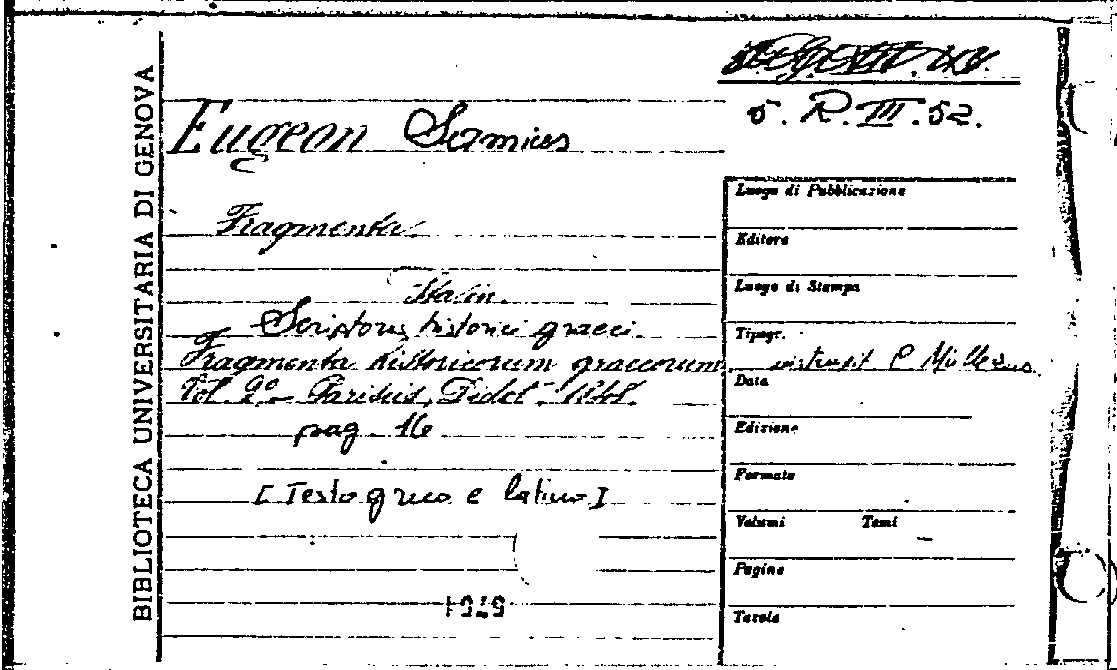 BIBLIOTECA UNIVERSITARIA DI GENOVA
5. R. III. 52.
Eugeon Samius
Fragmenta
Sta in
Scriptores historici graeci.
Fragmenta historicorum graecorum, instruxit C Müllerus.
Vol. 2º - Parisiis, Didot - 1848.
pag. 16
[Testo greco e latino]
Luogo di Pubblicazione
Editore
Luogo di Stampa
Tipogr.
Data
Edizione
Formato
Volumi Tomi
Pagine
Tavole